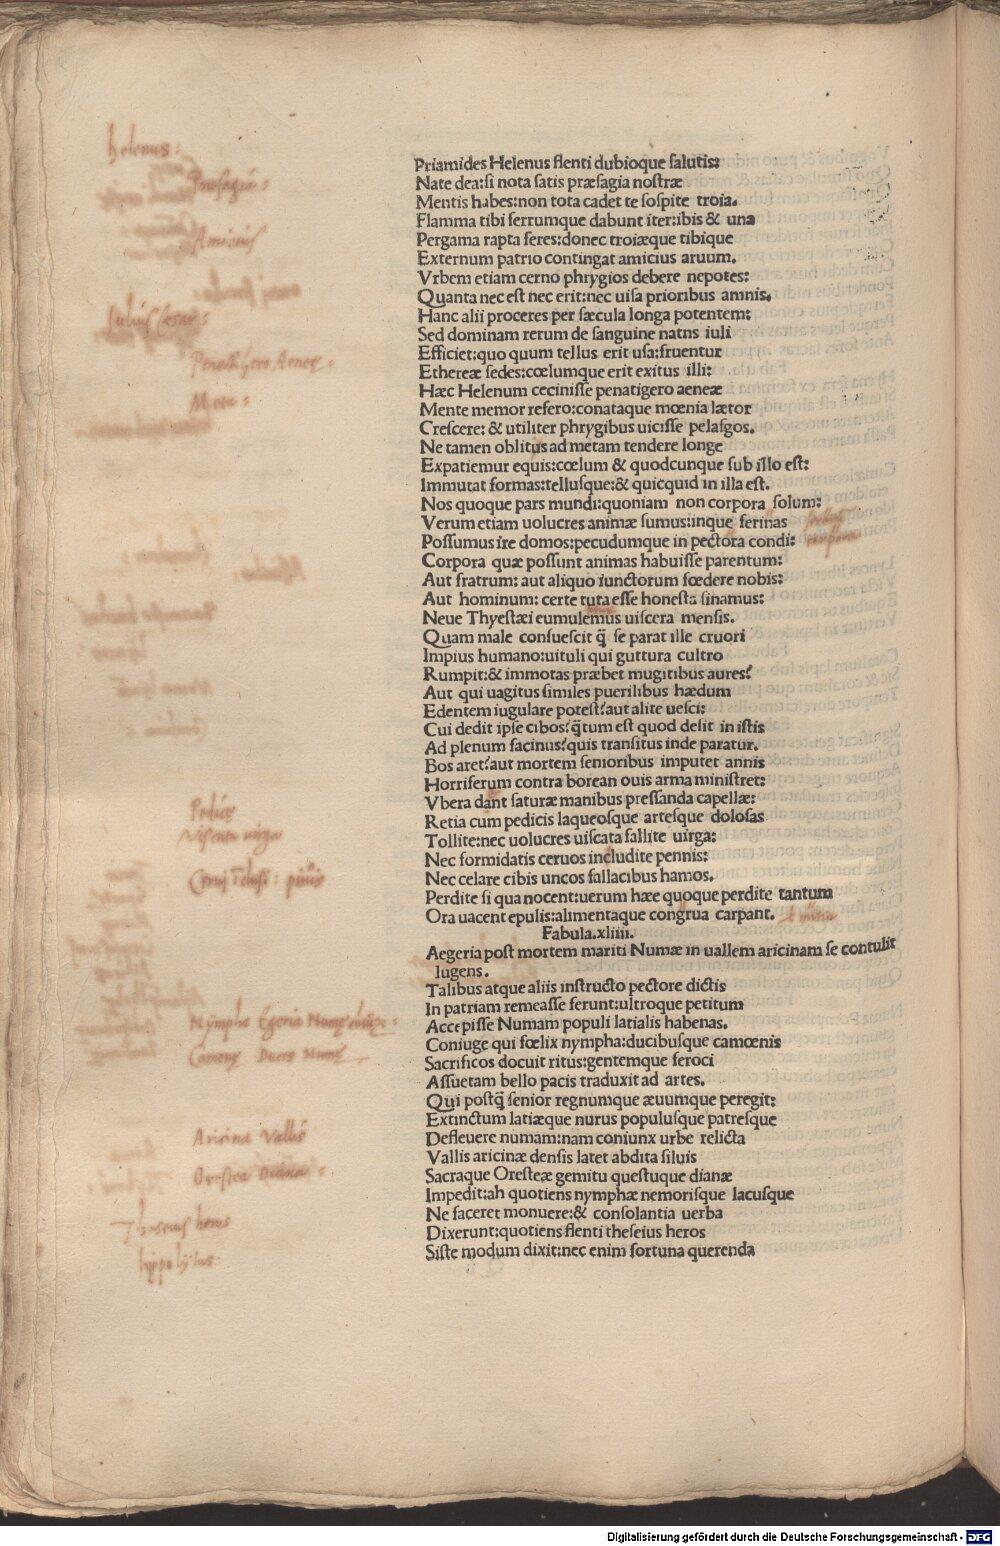 helenus:
Præsagia:
Amicius
Iulius Cæsar:
Penatigero Aeneę.
Metę:
Pedicę
Viscata uirga
Aricina Vallis
Orestea Diana:
Theseius heros
hippolytus
Priamides Helenus flenti dubioque salutis:
Nate dea:si nota satis præsagia nostræ
Mentis habes:non tota cadet te sospite troia.
Flamma tibi ferrumque dabunt iter:ibis & una
Pergama rapta feres:donec troiæque tibique
Externum patrio contingat amicius aruum.
Vrbem etiam cerno phrygios debere nepotes:
Quanta nec est nec erit:nec uisa prioribus amnis.
Hanc alii proceres per sæcula longa potentem:
Sed dominam rerum de sanguine natns iuli
Efficiet:quo quum tellus erit usa:fruentur
Ethereæ sedes:cœlumque erit exitus illi:
Hæc Helenum cecinisse penatigero aeneæ
Mente memor refero:conataque mœnia lætor
Crescere: & utiliter phrygibus uicisse pelasgos.
Ne tamen oblitus ad metam tendere longe
Expatiemur equis:cœlum & quodcunque sub illo est:
Immutat formas:tellusque:& quicquid in illa est.
Nos quoque pars mundi:quoniam non corpora solum:
Verum etiam uolucres animæ sumus:inque ferinas
Possumus ire domos:pecudumque in pectora condi:
Corpora quæ possunt animas habuisse parentum:
Aut fratrum: aut aliquo iunctorum fœdere nobis:
Aut hominum: certe tuta esse honesta sinamus:
Neue Thyestæi eumulemus uiscera mensis.
Quam male consuescit q̃ se parat ille cruori
Impius humano:uituli qui guttura cultro
Rumpit:& immotas præbet mugitibus aures?
Aut qui uagitus similes puerilibus hædum
Edentem iugulare potest?aut alite uesci:
Cui dedit ipse cibos?q̃tum est quod desit in istis
Ad plenum facinus?quis transitus inde paratur.
Bos aret?aut mortem senioribus imputet annis
Horriferum contra borean ouis arma ministret:
Vbera dant saturæ manibus pressanda capellæ:
Retia cum pedicis laqueosque artesque dolosas
Tollite:nec uolucres uiscata fallite uirga:
Nec formidatis ceruos includite pennis:
Nec celare cibis uncos fallacibus hamos.
Perdite si qua nocent:uerum hæc quoque perdite tantum
Ora uacent epulis:alimentaque congrua carpant.
Fabula.xliiii.
Aegeria post mortem mariti Numæ in uallem aricinam se contulit
lugens.
Talibus atque aliis instructo pectore dictis
In patriam remeasse ferunt:ultroque petitum
Accepisse Numam populi latialis habenas.
Coniuge qui fœlix nympha:ducibusque camœnis
Sacrificos docuit ritus:gentemque feroci
Assuetam bello pacis traduxit ad artes.
Qui postq̃ senior regnumque æuumque peregit:
Extinctum latiæque nurus populusque patresque
Defleuere numam:nam coniunx urbe relicta
Vallis aricinæ densis latet abdita siluis
Sacraque Oresteæ gemitu questuque dianæ
Impedit:ah quotiens nymphæ nemorisque lacusque
Ne faceret monuere:& consolantia uerba
Dixerunt:quotiens flenti theseius heros
Siste modum dixit:nec enim fortuna querenda
Digitalisierung gefördert durch die Deutsche Forschungsgemeinschaft - DFG